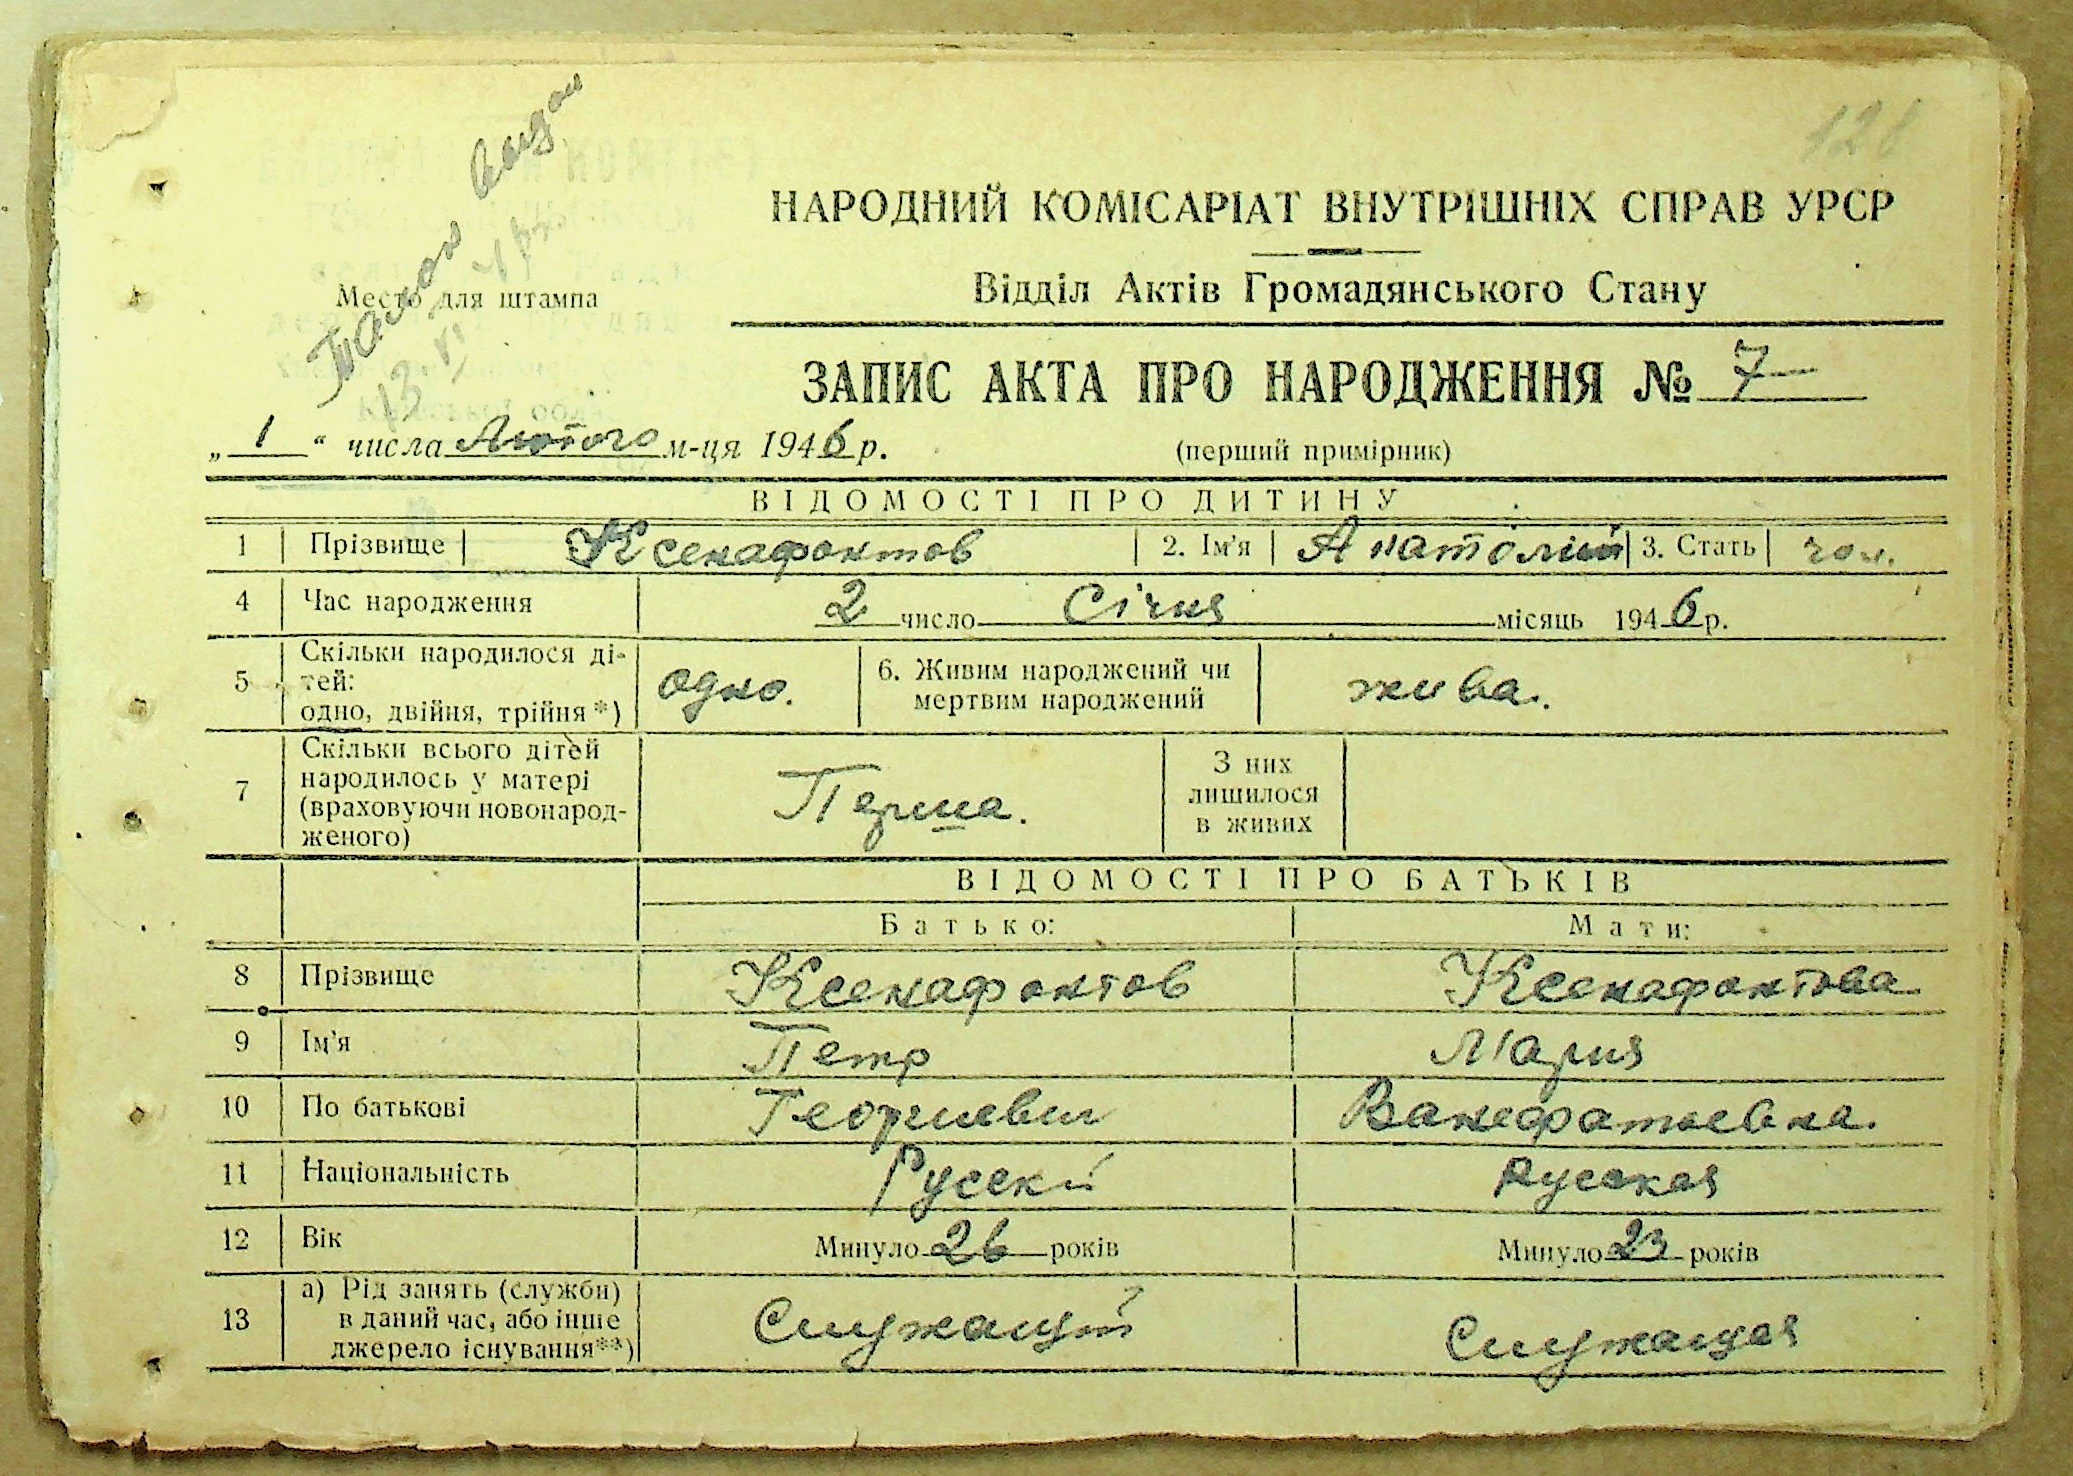 Талон выдан
НАРОДНИЙ КОМІСАРІАТ ВНУТРІШНІХ СПРАВ УРСР
Место для штампа
Відділ Актів Громадянського Стану
ЗАПИС АКТА ПРО НАРОДЖЕННЯ № 7
„ 1 “ числа Лютого м-ця 1946 р.
(перший примірник)
ВІДОМОСТІ ПРО ДИТИНУ
1 Прізвище Ксенафонтов 2. Ім'я Анатолий 3. Стать чол.
4 Час народження 2 число Січня місяць 1946 р.
5 Скільки народилося ді-
тей:
одно, двійня, трійня *) одно. 6. Живим народжений чи
мертвим народжений жива.
7 Скільки всього дітей
народилось у матері
(враховуючи новонарод-
женого) Перша. З них
лишилося
в живих
ВІДОМОСТІ ПРО БАТЬКІВ
Батько: Мати:
8 Прізвище Ксенафонтов Ксенафонтова
9 Ім'я Петр Мария
10 По батькові Георгиевич Ванефатьевна.
11 Національність Русский Русская
12 Вік Минуло 26 років Минуло 23 років
13 а) Рід занять (служби)
в даний час, або інше
джерело існування**) Служащий Служащая